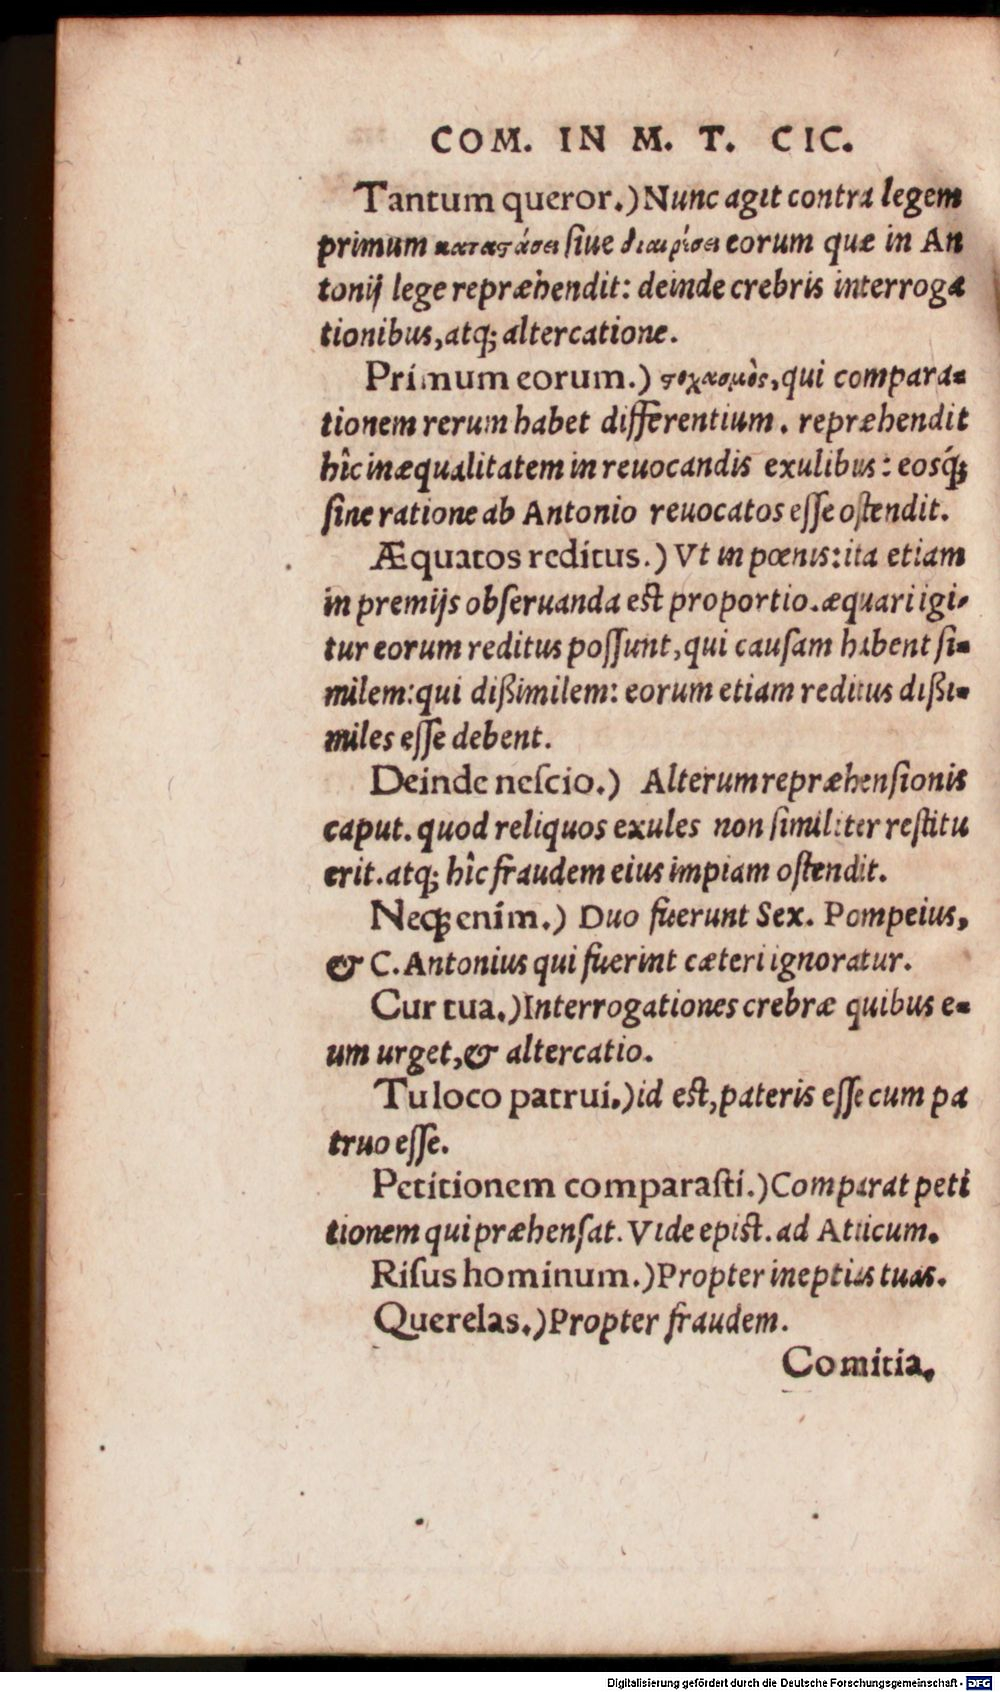 COM. IN M. T. CIC.
Tantum queror.) Nunc agit contra legem
primum καταϛάσει ſiue διαιρέσει eorum quæ in An
tonij lege repræhendit: deinde crebris interroga
tionibus, atq; altercatione.
Primum eorum.) ϛοχασμὸς, qui compara-
tionem rerum habet differentium. repræhendit
hîc inæqualitatem in reuocandis exulibus: eosq́;
ſine ratione ab Antonio reuocatos eſſe oſtendit.
Æquatos reditus.) Vt in pœnis: ita etiam
in premijs obſeruanda est proportio. æquari igi-
tur eorum reditus poſſunt, qui cauſam habent ſi-
milem: qui dißimilem: eorum etiam reditus dißi-
miles eſſe debent.
Deinde neſcio.) Alterum repræhenſionis
caput. quod reliquos exules non ſimiliter reſtitu
erit. atq; hîc fraudem eius impiam oſtendit.
Neq; enim.) Duo fuerunt Sex. Pompeius,
& C. Antonius qui fuerint cæteri ignoratur.
Cur tua.) Interrogationes crebræ quibus e-
um urget, & altercatio.
Tu loco patrui.) id est, pateris eſſe cum pa
truo eſſe.
Petitionem comparaſti.) Comparat peti
tionem qui præhenſat. Vide epist. ad Atticum.
Riſus hominum.) Propter ineptias tuas.
Querelas.) Propter fraudem.
Comitia.
Digitalisierung gefördert durch die Deutsche Forschungsgemeinschaft - DFG